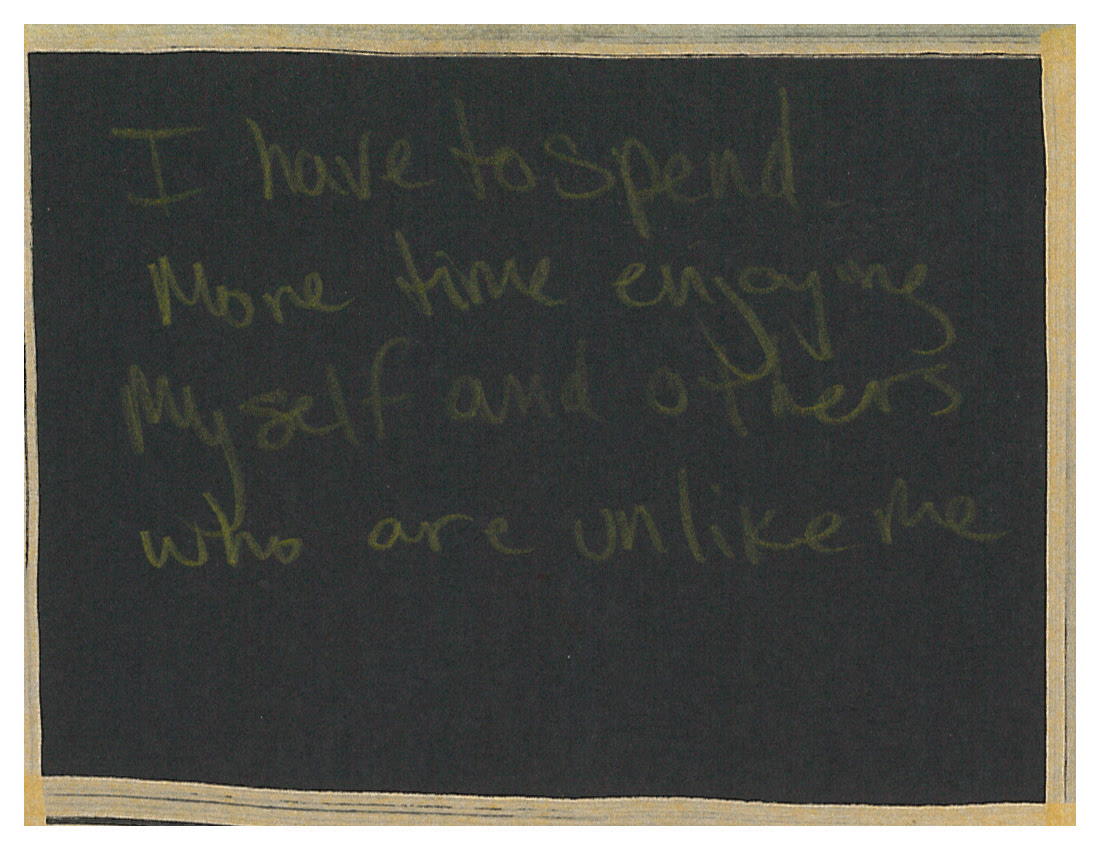 I have to spend
More time enjoying
Myself and others
who are unlike me